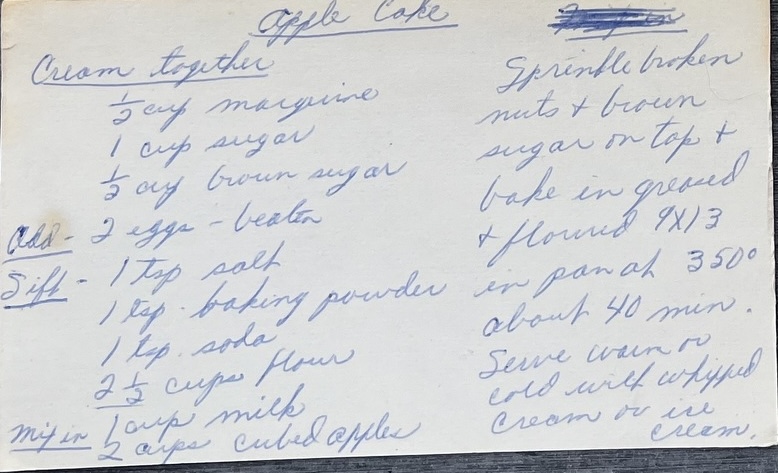 Apple Cake
Cream together
1/2 cup margurine
1 cup sugar
1/2 cup brown sugar
Add - 2 eggs - beaten
Sift - 1 tsp salt
1 tsp. baking powder
1 tsp. soda
2 1/2 cups flour
Mix in 1 cup milk
2 cups cubed apples
Sprinkle broken
nuts + brown
sugar on top +
bake in greased
+ floured 9X13
in pan at 350°
about 40 min.
Serve warm or
cold with whipped
cream or ice
cream.